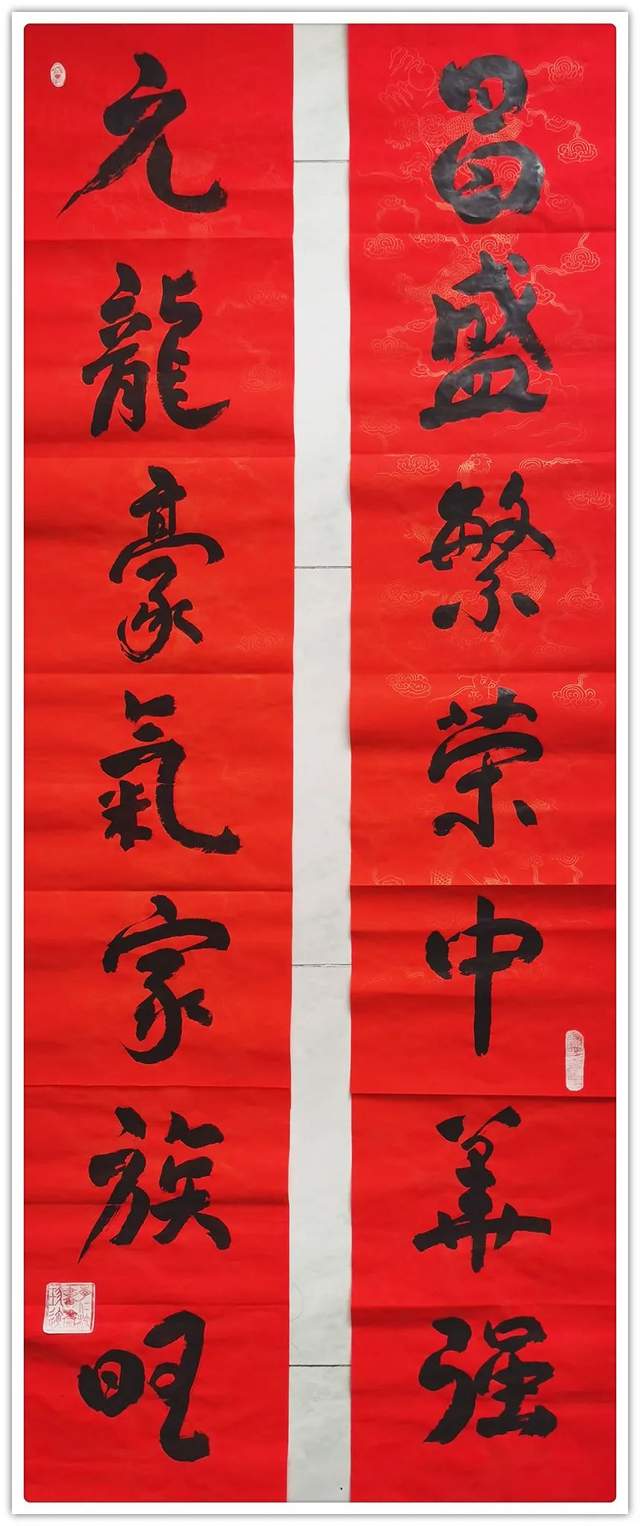 昌盛繁荣中华强
元龍豪氣家族旺